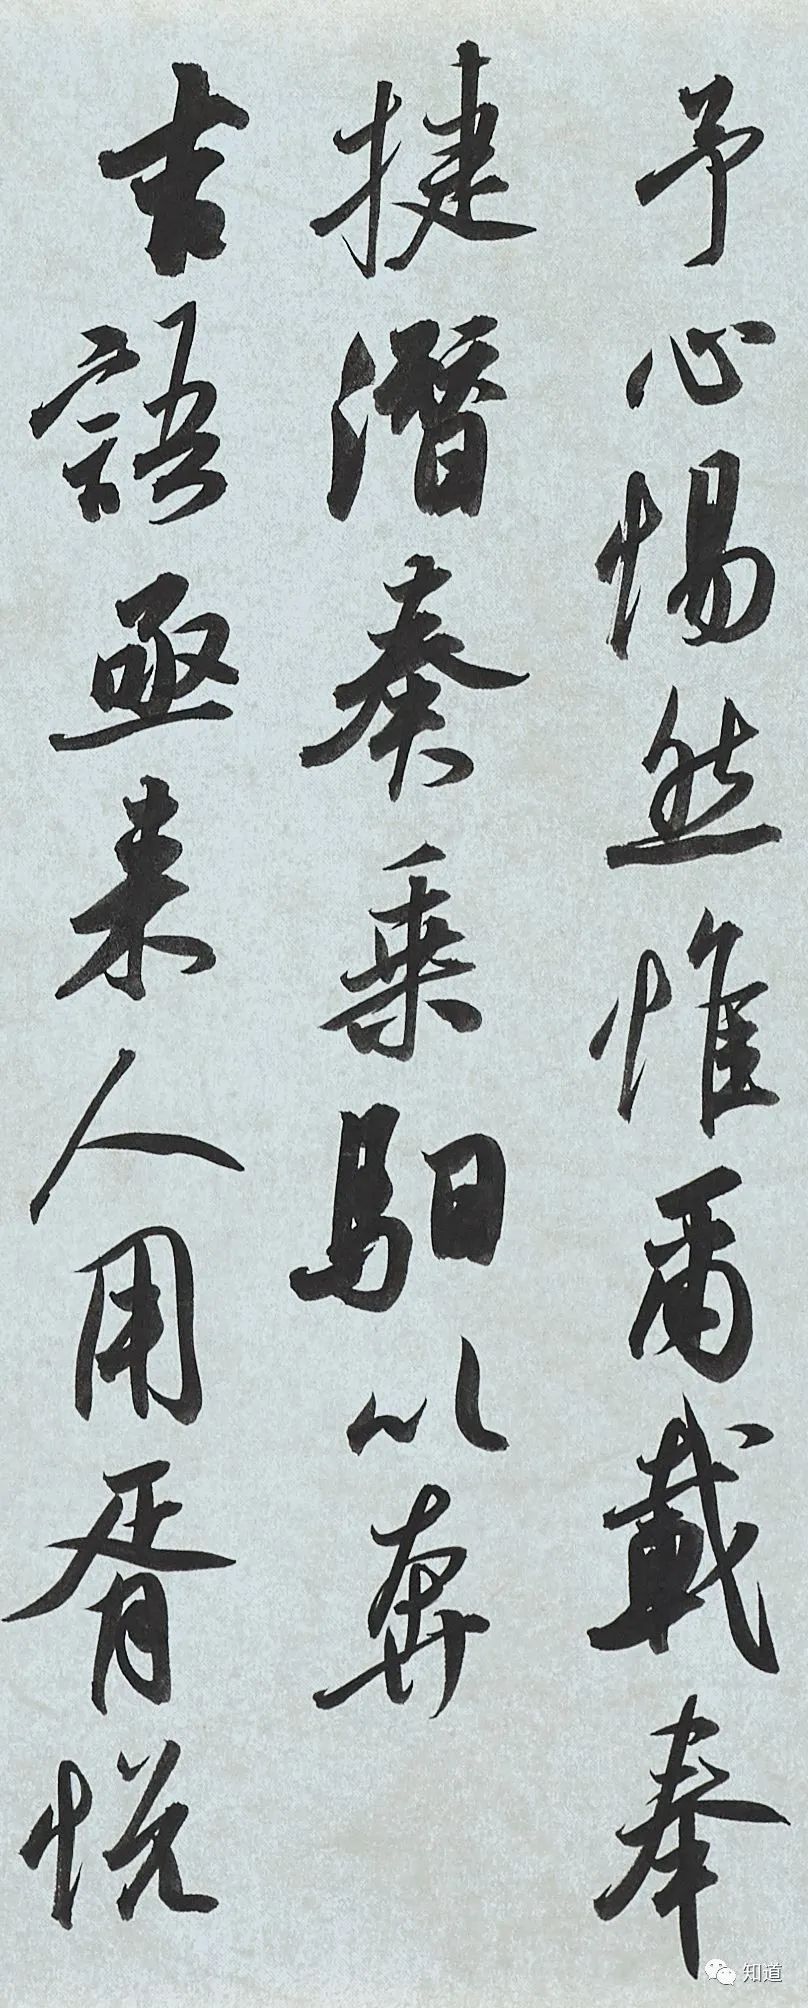 予心惕然惟爾載奉
捷潛奏乘馹以奔
吉語亟来人用胥悦
知道